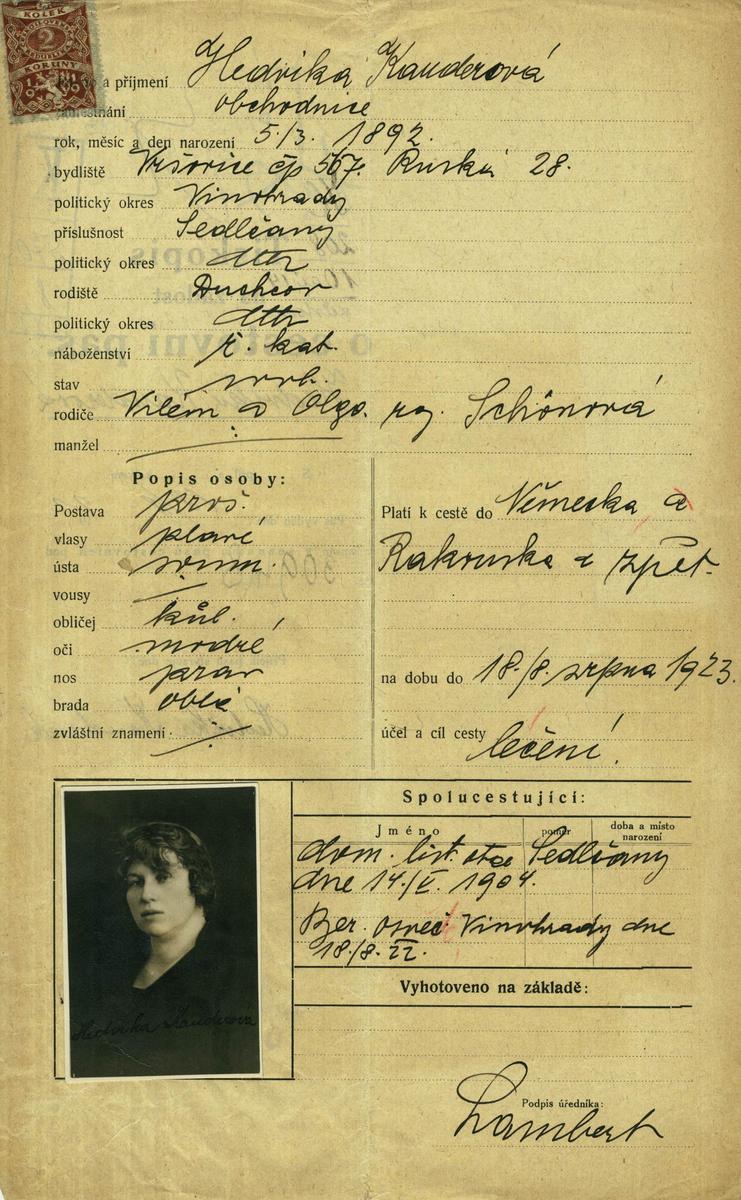 KOLEK
2
KORUNY
a příjmení Hedvika Kauderová
zaměstnání obchodnice
rok, měsíc a den narození 5./3. 1892.
bydliště Vršovice čp 567. Ruská 28.
politický okres Vinohrady
příslušnost Sedlčany
politický okres dtto
rodiště Duchcov
politický okres dtto
náboženství ř. kat.
stav svob.
rodiče Vilém a Olga roz. Schönová
manžel
Popis osoby:
Postava pros.
vlasy plavé
ústa soum.
vousy
obličej kul.
oči modré
nos prav
brada oblá
zvláštní znamení
Platí k cestě do Německa a
Rakouska a zpět.
na dobu do 18./8. srpna 1923.
účel a cíl cesty léčení.
Spolucestující:
Jméno poměr doba a místo narození
dom. list. otce Sedlčany
dne 14./V. 1904.
Ber. osvěd Vinohrady dne
18./8. 22.
Vyhotoveno na základě:
Hedvika Kauderová
Podpis úředníka:
Lambert